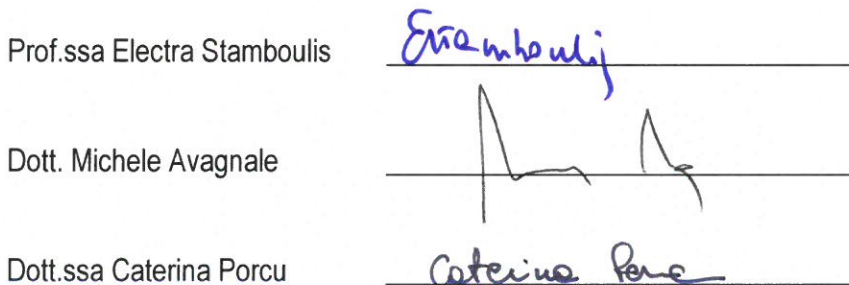 Prof.ssa Electra Stamboulis EStamboulis
Dott. Michele Avagnale
Dott.ssa Caterina Porcu Caterina Porcu